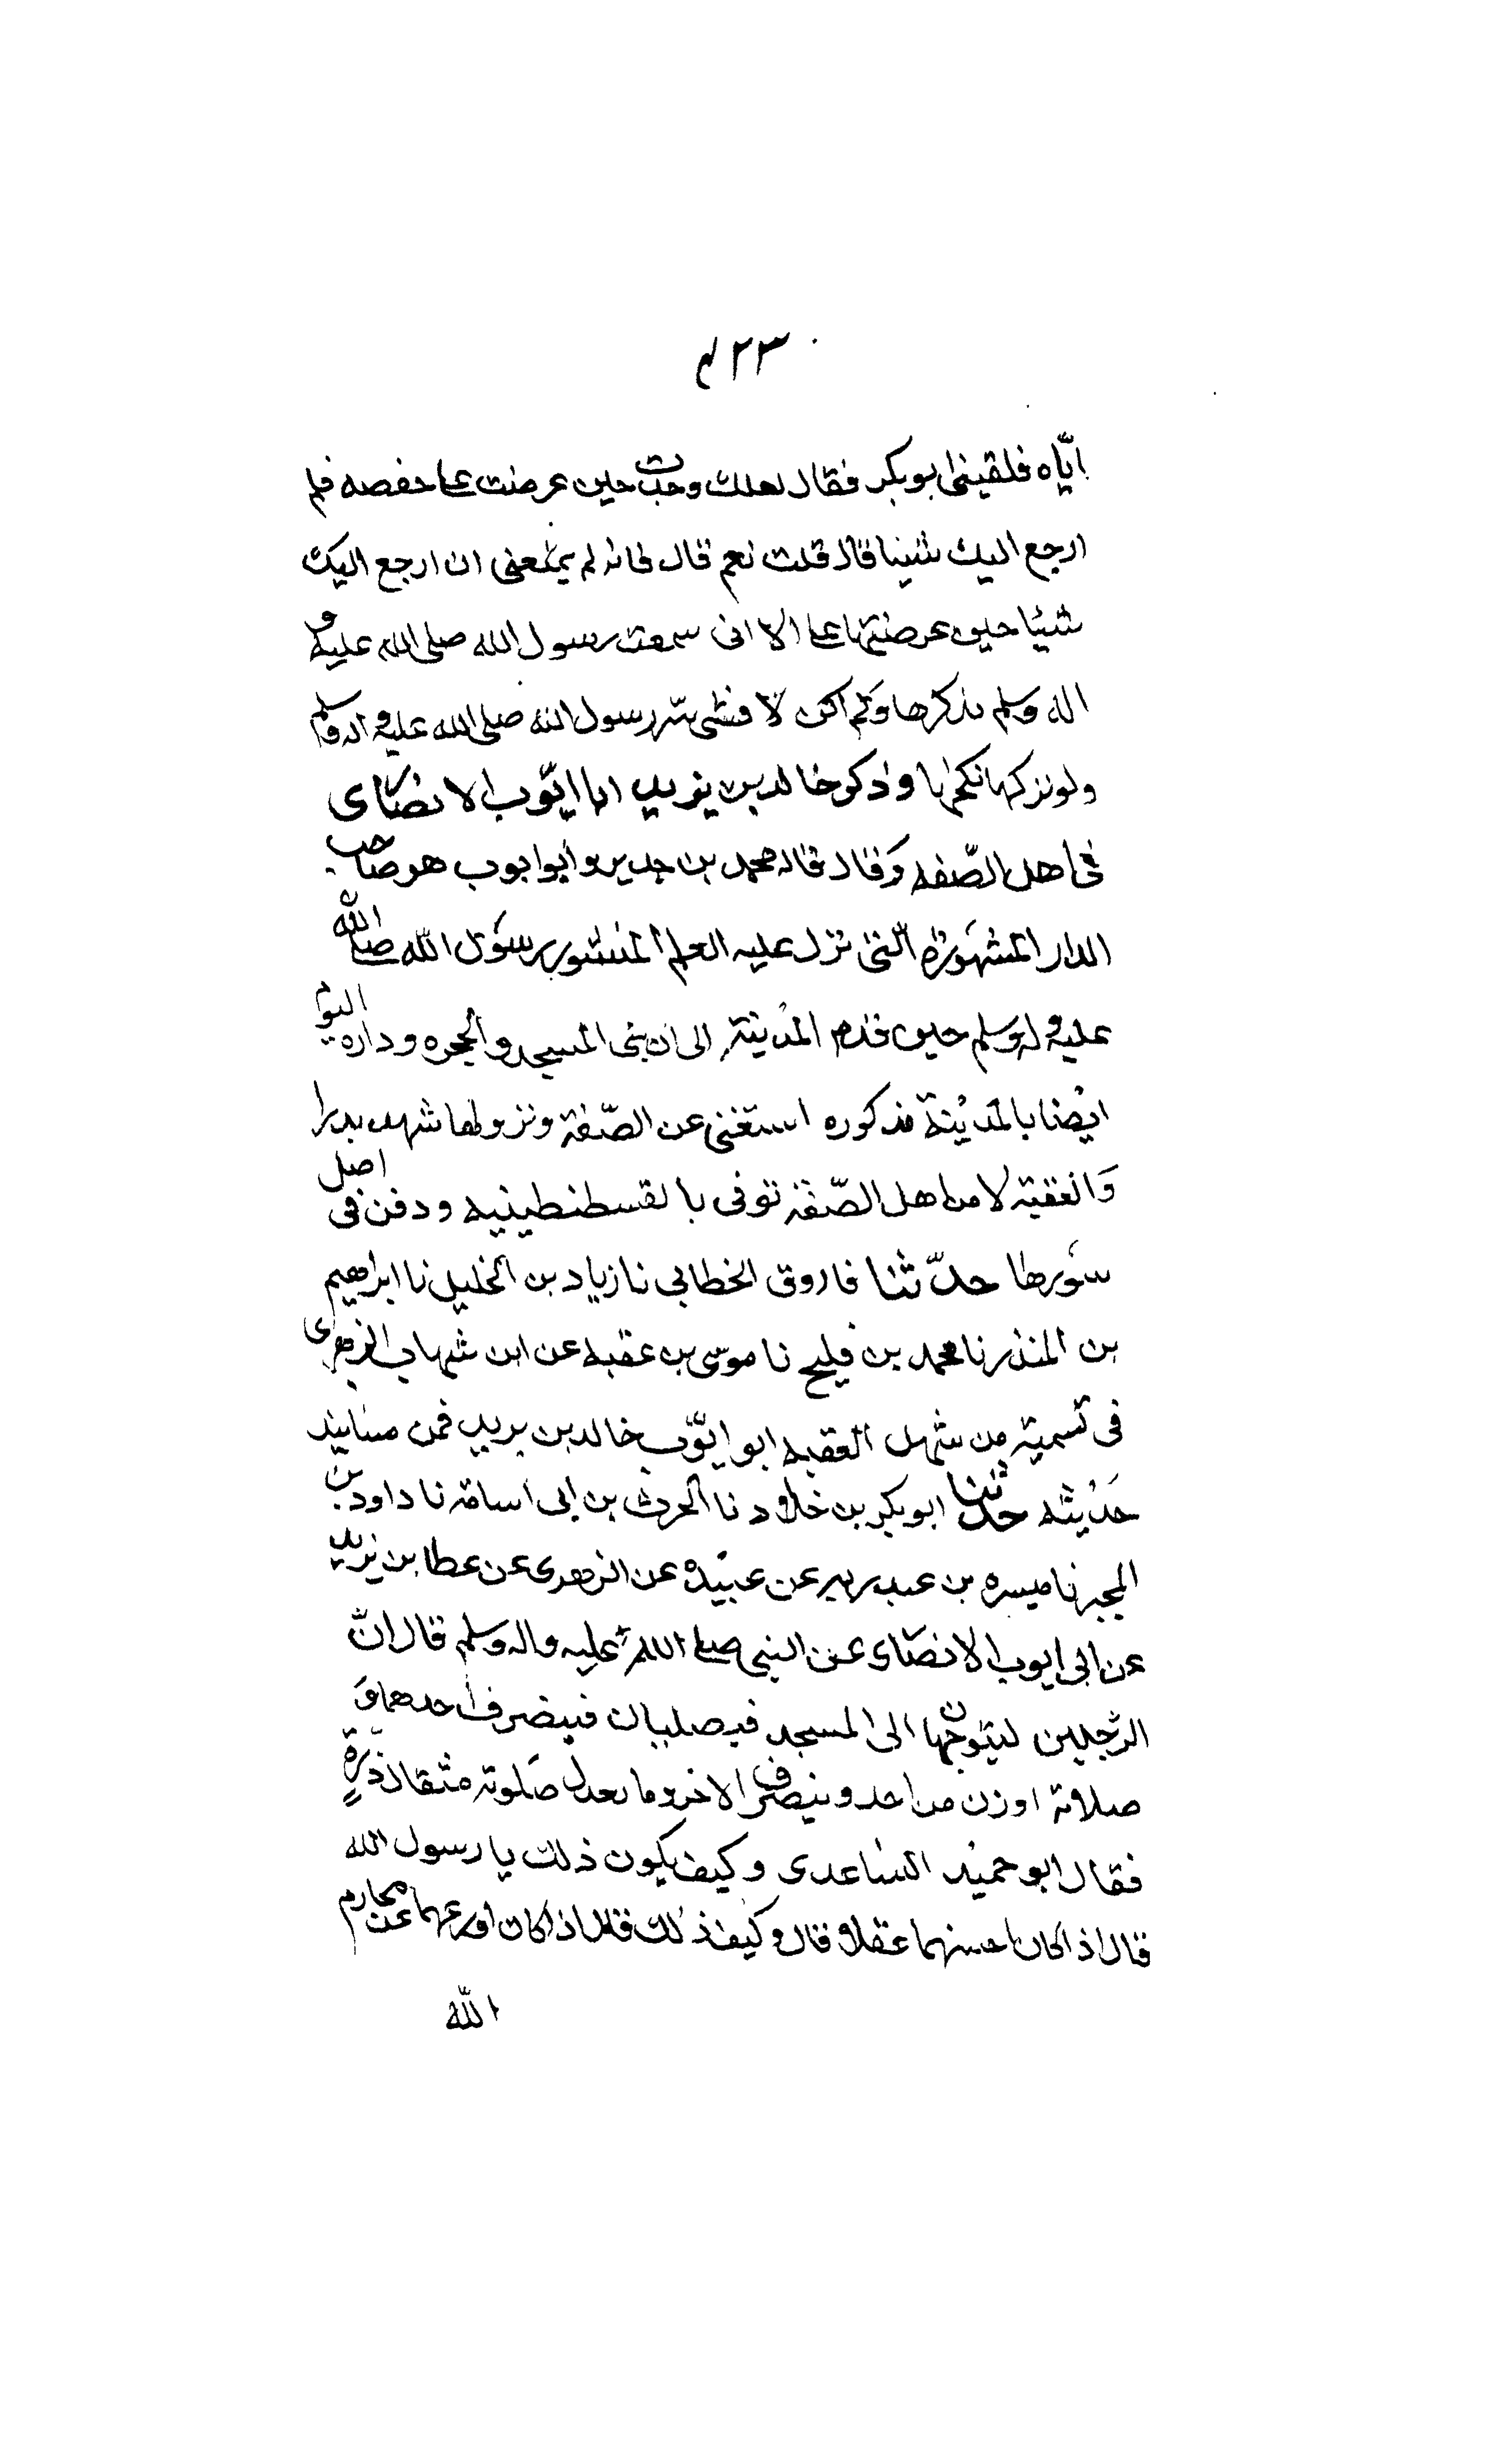 ٤٢٣
ايّاه فلقينى ابو بكر فقال لعلك وجدت حين عرضت على حفصه فلم
ارجع اليك شيئا قال قلت نعم قال فانه لم يمنعنى ان ارجع اليك
شيئا حين عرضتها على الا انى سمعت رسول الله صلى الله عليه و
اله وسلم يذكرها ولم اكن لافشى سرّ رسول الله صلى الله عليه واله وسلم
ولو تركها نكحتها وذكر خالد بن يزيد ابا ايّوب الانصاى
فى اهل الصّفه وقال قاله محمد بن جرير وابو ايوب هو صاحب
الدار المشهوره الّتى نزل عليه العلم المنشور رسول اللّه صلى اللّه
عليه واله وسلم حين قدم المدينة الى ان بنى المسجد والحجره وداره اليوم
ايضا بالمدينة مذكوره استغنى عن الصّفة ونزولها شهد بدرا
والعقبة لا من اهل الصّفة توفى بالقسطنطينيه ودفن فى اصل
سورها حدّثنا فاروق الخطابى نا زياد بن الخليل نا ابراهيم
بن المنذر نا محمد بن فليح نا موسى بن عقبه عن ابن شهاب الزهرى
فى تسمية من شهد العقبه ابو ايّوب خالد بن يزيد فمن مسانيد
حديثه حدثنا ابو بكر بن خلاد نا الحرث بن ابى اسامة نا داود بن
المحبر نا ميسره بن عبد ربه عن عبيده عن الزهرى عن عطا بن يزيد
عن ابى ايوب الانصاى عن النبى صلى الله عليه واله وسلم قال انّ
الرّجلين ليتوجّهان الى المسجد فيصليان فينصرف احدهما و
صلاته اوزن من احد وينصرف الاخر وما يعدل صلوته مثقال ذرّةٍ
فقال ابو حميد الساعدى وكيف يكون ذلك يا رسول الله
قال اذا كان احسنهما عقلا قال وكيف ذلك قال اذا كان اورعهما عن محارم
اللّه